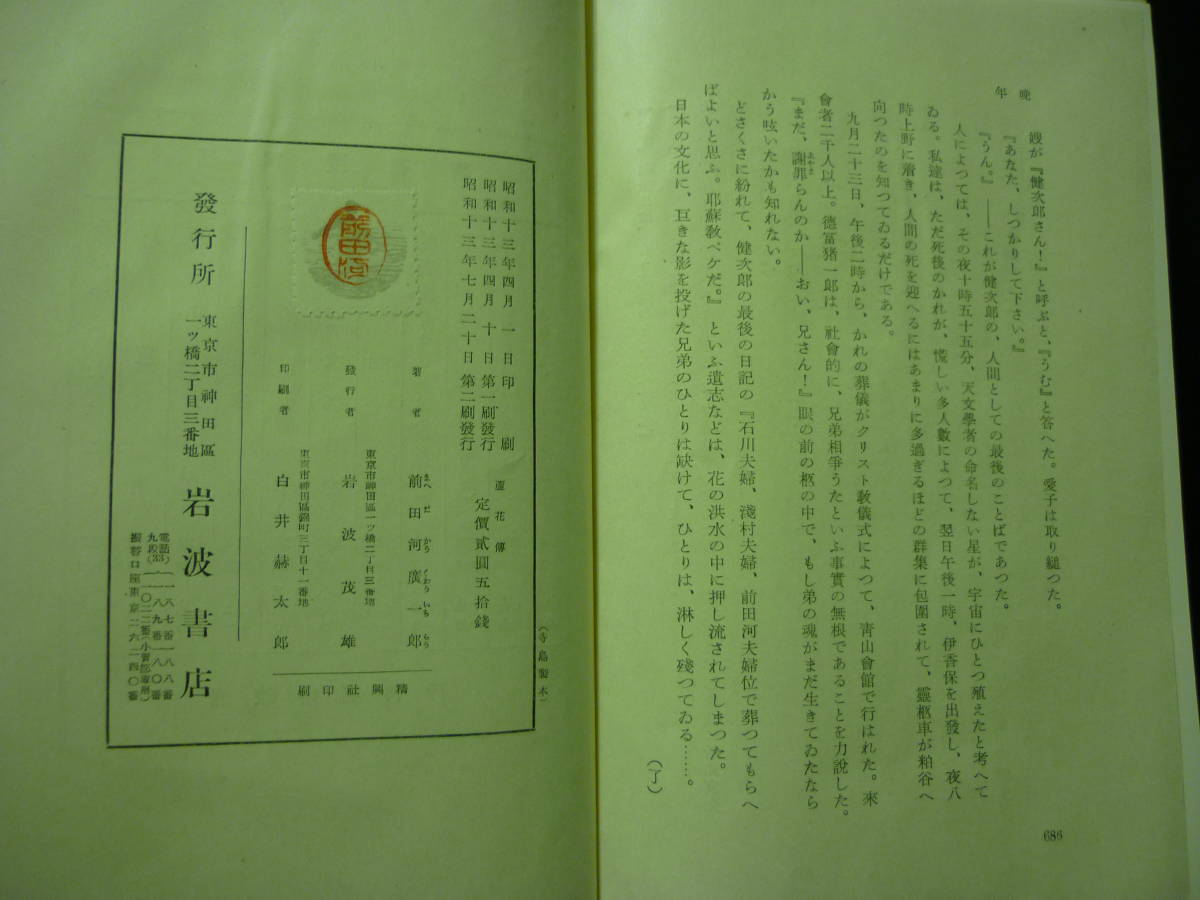 晩年
嫂が『健次郎さん！』と呼ぶと、『うむ』と答へた。愛子は取り縋つた。
『あなた、しつかりして下さい。』
『うん。』――これが健次郎の、人間としての最後のことばであつた。
人によつては、その夜十時五十五分、天文學者の命名しない星が、宇宙にひとつ殖えたと考へて
ゐる。私達は、ただ死後のかれが、慌しい多人數によつて、翌日午後一時、伊香保を出發し、夜八
時上野に着き、人間の死を迎へるにはあまりに多過ぎるほどの群集に包圍されて、靈柩車が粕谷へ
向つたのを知つてゐるだけである。
九月二十三日、午後二時から、かれの葬儀がクリスト敎儀式によつて、靑山會館で行はれた。來
會者二千人以上。德富猪一郎は、社會的に、兄弟相爭うたといふ事實の無根であることを力說した。
『まだ、謝罪らんのか――おい、兄さん！』眼の前の柩の中で、もし弟の魂がまだ生きてゐたなら
かう呟いたかも知れない。
どさくさに紛れて、健次郎の最後の日記の『石川夫婦、淺村夫婦、前田河夫婦位で葬つてもらへ
ばよいと思ふ。耶蘇敎ペケだ。』といふ遺志などは、花の洪水の中に押し流されてしまつた。
日本の文化に、巨きな影を投げた兄弟のひとりは缺けて、ひとりは、淋しく殘つてゐる……。
（了）
686
（寺島製本）
蘆花傳
定價貳圓五拾錢
昭和十三年四月一日印刷
昭和十三年四月十日第一刷發行
昭和十三年七月二十日第二刷發行
著者
前田河廣一郎
發行者
東京市神田區一ツ橋二丁目三番地
岩波茂雄
印刷者
東京市神田區錦町三丁目十一番地
白井赫太郎
精興社印刷
前田河
發行所
東京市神田區
一ツ橋二丁目三番地
岩波書店
電話
九段(33)
振替口座東京二六二四〇番